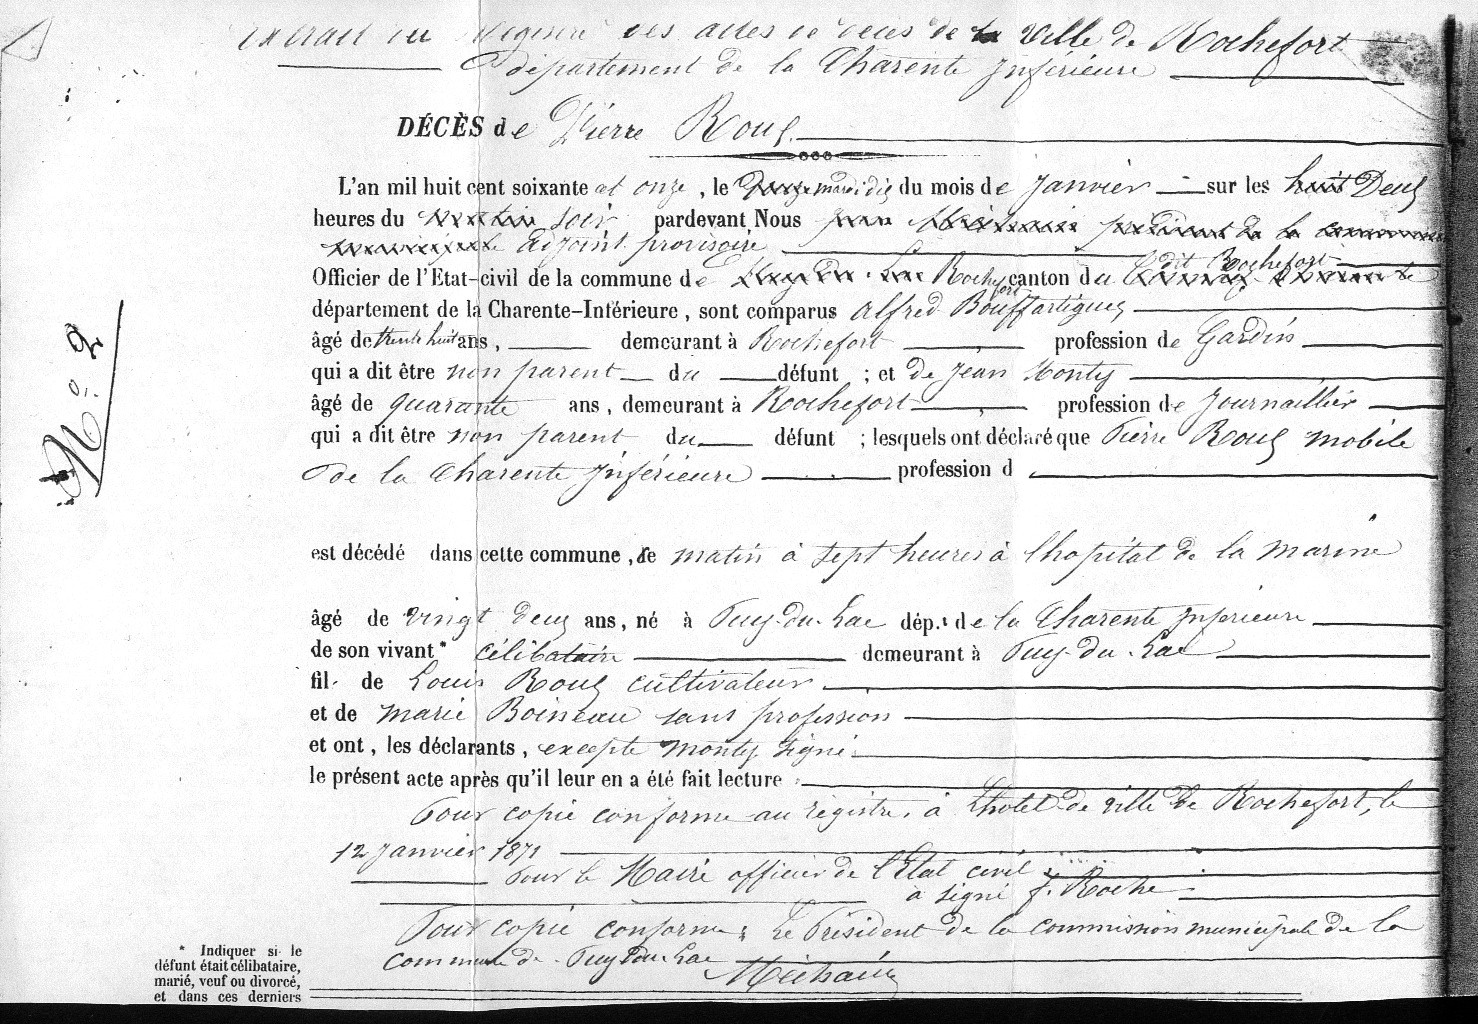 Extrait du Registre des actes de décès de la Ville de Rochefort
département de la Charente Inférieure
DÉCÈS de Pierre Roux
L'an mil huit cent soixante et onze, le mardi dix du mois de Janvier sur les huit Deux
heures du matin soir pardevant Nous président de la commission
municipale adjoint provisoire
dit Rochefort
Officier de l'Etat-civil de la commune de Puy du Lac Rochefort canton du
département de la Charente-Inférieure, sont comparus Alfred Bouffartigues
âgé de trente huit ans, demeurant à Rochefort profession de Gardin
qui a dit être non parent du défunt ; et de Jean Monty
âgé de quarante ans, demeurant à Rochefort profession de Journaillier
qui a dit être non parent du défunt ; lesquels ont déclaré que Pierre Roux mobile
de la Charente Inférieure profession d
est décédé dans cette commune, le matin à sept heures à l'hopital de la marine
âgé de vingt deux ans, né à Puy-du-Lac dép.t de la Charente Inférieure
de son vivant * célibataire demeurant à Puy-du-Lac
fil- de Louis Roux cultivateur
et de Marie Boineau sans profession
et ont, les déclarants, excepté Monty signé
le présent acte après qu'il leur en a été fait lecture
Pour copie conforme au registre, à L'hotel de ville de Rochefort, le
12 Janvier 1871
Pour le Maire officier de l'Etat civil
a signé J. Roche
Pour copie conforme : Le Président de la commission municipale de la
commune de Puy du Lac
Méchain
N° 2
* Indiquer si le
défunt était célibataire,
marié, veuf ou divorcé,
et dans ces derniers